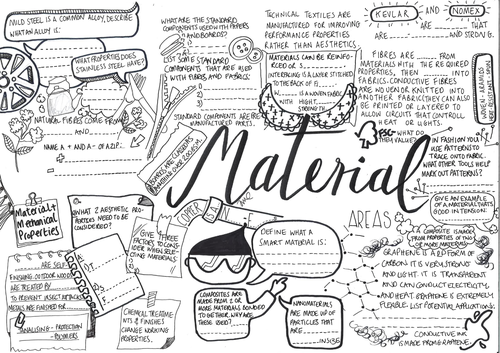 MILD STEEL IS A COMMON ALLOY, DESCRIBE
WHAT AN ALLOY IS:
WHAT PROPERTIES DOES
STAINLESS STEEL HAVE?
NATURAL FIBRES COME FROM
AND
NAME A + AND - OF A.D.P.:
WHAT ARE THE STANDARD
COMPONENTS USED WITH PAPERS
AND BOARDS?
1)
2)
3)
LIST SOME STANDARD
COMPONENTS THAT ARE
USED WITH FIBRES AND FABRICS:
1)
2)
3)
STANDARD COMPONENTS ARE PRE
MANUFACTURED PARTS.
TECHNICAL TEXTILES ARE
MANUFACTURED FOR IMPROVING
PERFORMANCE PROPERTIES
RATHER THAN AESTHETICS.
MATERIALS CAN BE REINFO-
RCED BY
INTERFACING IS A LAYER STITCHED
TO THE BACK OF
IS A WOVEN FABRIC
WITH HIGH
STRENGTH
KEVLAR AND NOMEX
ARE THAT
ARE AND STRONG.
FIBRES ARE FROM
MATERIALS WITH THE REQUIRED
PROPERTIES, THEN INTO
FABRICS. CONDUCTIVE FIBRES
ARE WOVEN OR KNITTED INTO
ANOTHER FABRIC. THEY CAN ALSO
BE PRINTED OR LAYERED TO
ALLOW CIRCUITS THAT CONTROL
HEAT OR LIGHTS.
FSC WHAT DO
THEM VALUE?
IN FASHION YOU
USE PATTERNS TO
TRACE ONTO FABRIC.
WHAT OTHER TOOLS HELP
MARK OUT PATTERNS?
Material
AREAS
GIVE AN EXAMPLE
OF A MATERIAL THAT'S
GOOD IN TENSION:
A COMPOSITE IS MADE
FROM PROPERTIES OF TWO
OR MORE MATERIALS
GRAPHENE IS A 2D FORM OF
CARBON. IT IS VERY STRONG
AND LIGHT. IT IS TRANSPARENT
AND CAN CONDUCT ELECTRICITY
AND HEAT. GRAPHENE IS EXTREMELY
FLEXIBLE. LIST POTENTIAL APPLICATIONS:
CONDUCTIVE INK
IS MADE FROM GRAPHENE.
Material +
Mechanical
Properties
WHAT 2 AESTHETIC
PROPERTIES
NEED TO BE
CONSIDERED?
GIVE THREE
FACTORS TO
CONSIDER
WHEN SELE-
CTING MATERIALS
1)
2)
3)
DEFINE WHAT A
SMART MATERIAL IS:
ARE SELF-
FINISHING. OUTDOOR WOODS
ARE TREATED BY
TO PREVENT INSECT ATTACKS.
METALS ARE FINISHED FOR
CHEMICAL TREATME-
NTS & FINISHES
CHANGE WORKING
PROPERTIES.
COMPOSITES ARE
MADE FROM 2 OR
MORE MATERIALS BONDED
TOGETHER. WHY ARE
THESE USED?
NANOMATERIALS
ARE MADE UP OF
PARTICLES THAT
ARE
IN SIZE